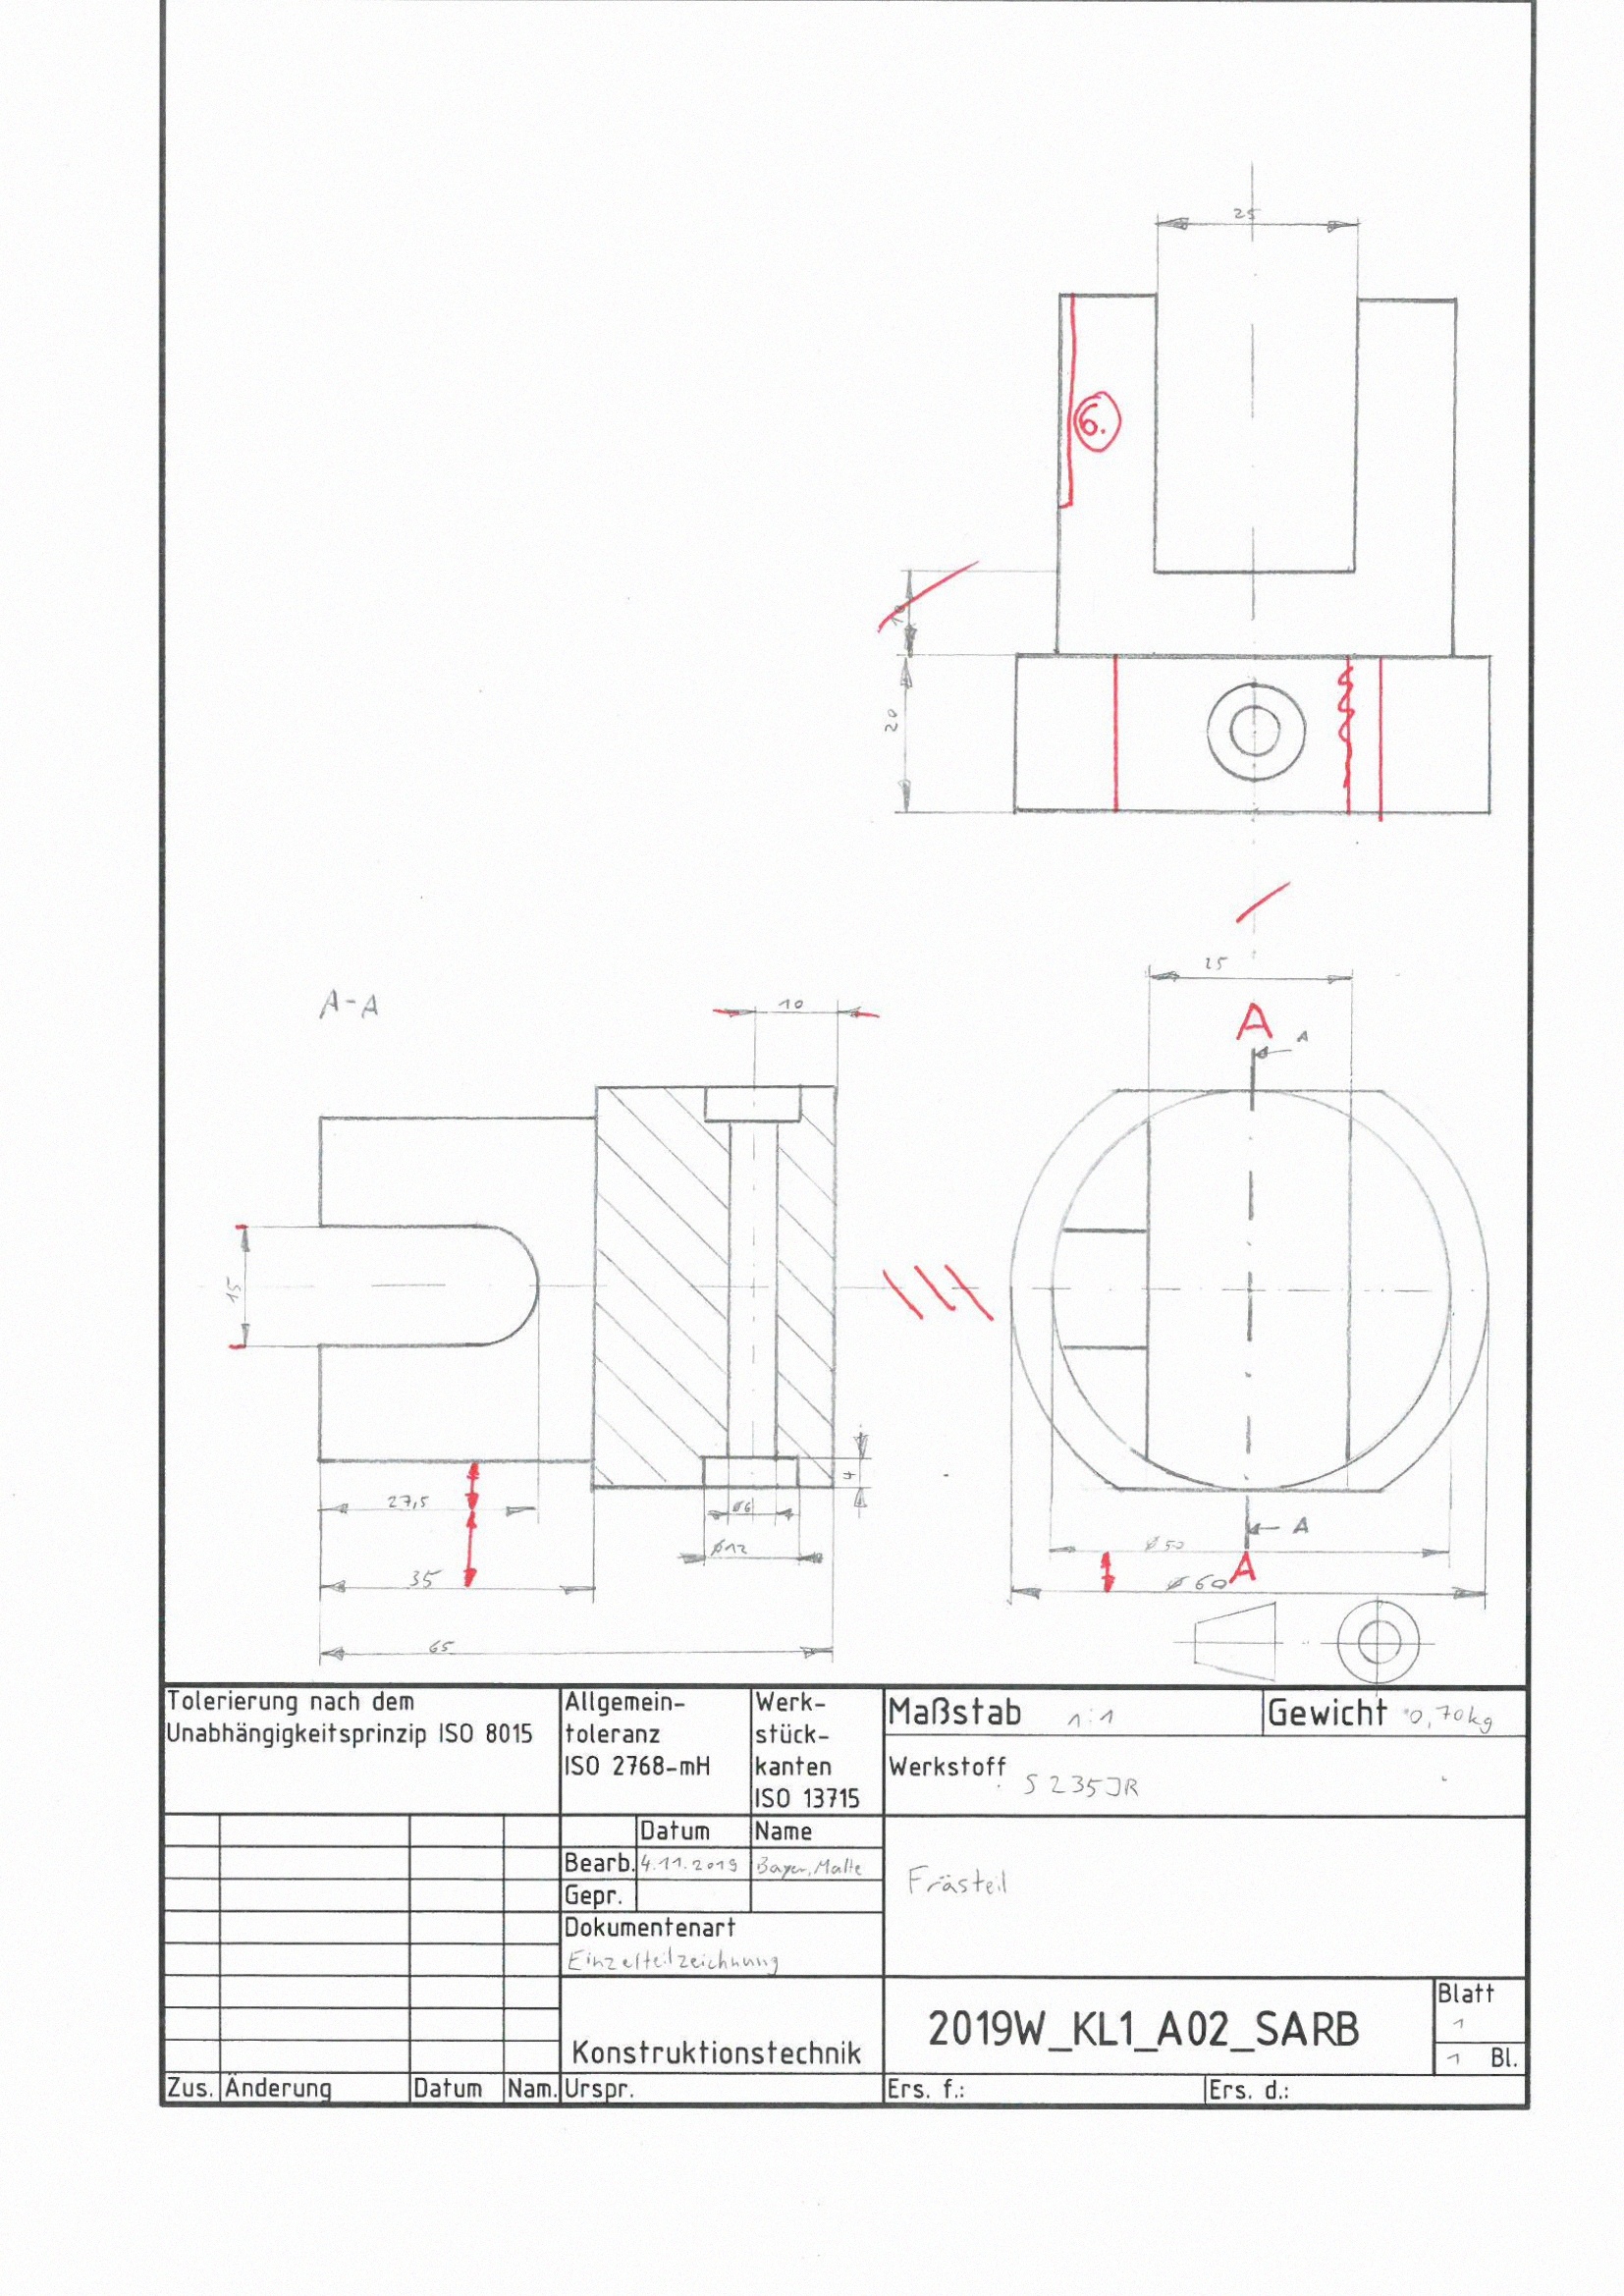 25
6.
10
20
25
A-A
10
A
A
15
27,5
ø6
4
ø12
A
ø50
A
35
ø60
65
Tolerierung nach dem
Unabhängigkeitsprinzip ISO 8015
Allgemein-
toleranz
ISO 2768-mH
Werk-
stück-
kanten
ISO 13715
Maßstab 1:1
Gewicht 0,70kg
Werkstoff S235JR
Datum Name
Bearb. 4.11.2019 Bayer, Malte
Gepr.
Frästeil
Dokumentenart
Einzelteilzeichnung
Konstruktionstechnik
2019W_KL1_A02_SARB
Blatt
1
1 Bl.
Zus. Änderung Datum Nam. Urspr. Ers. f.: Ers. d.: